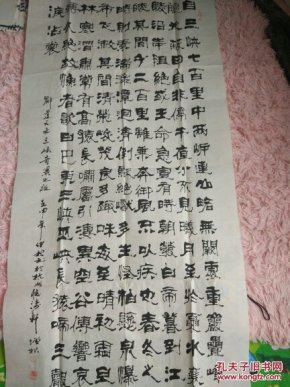 自三峡七百里中兩岍連山略無闕處重巖疊嶂
隱天蔽日自非停午夜分不見曦月至於夏水襄
陵沿泝阻絶或王命急宣有時朝發白帝暮到江
陵其間千二百里雖乘奔御風不以疾也春冬之
時則素湍渌潭迴清倒影絶巘多生檉柏懸泉瀑
布飛漱其間清榮峻茂良多趣味每至晴初霜旦
林寒澗肅常有高猿長嘯屬引淒異空谷傳響哀
轉久絶故漁者歌曰巴東三峡巫峡長猿鳴三聲
淚沾裳